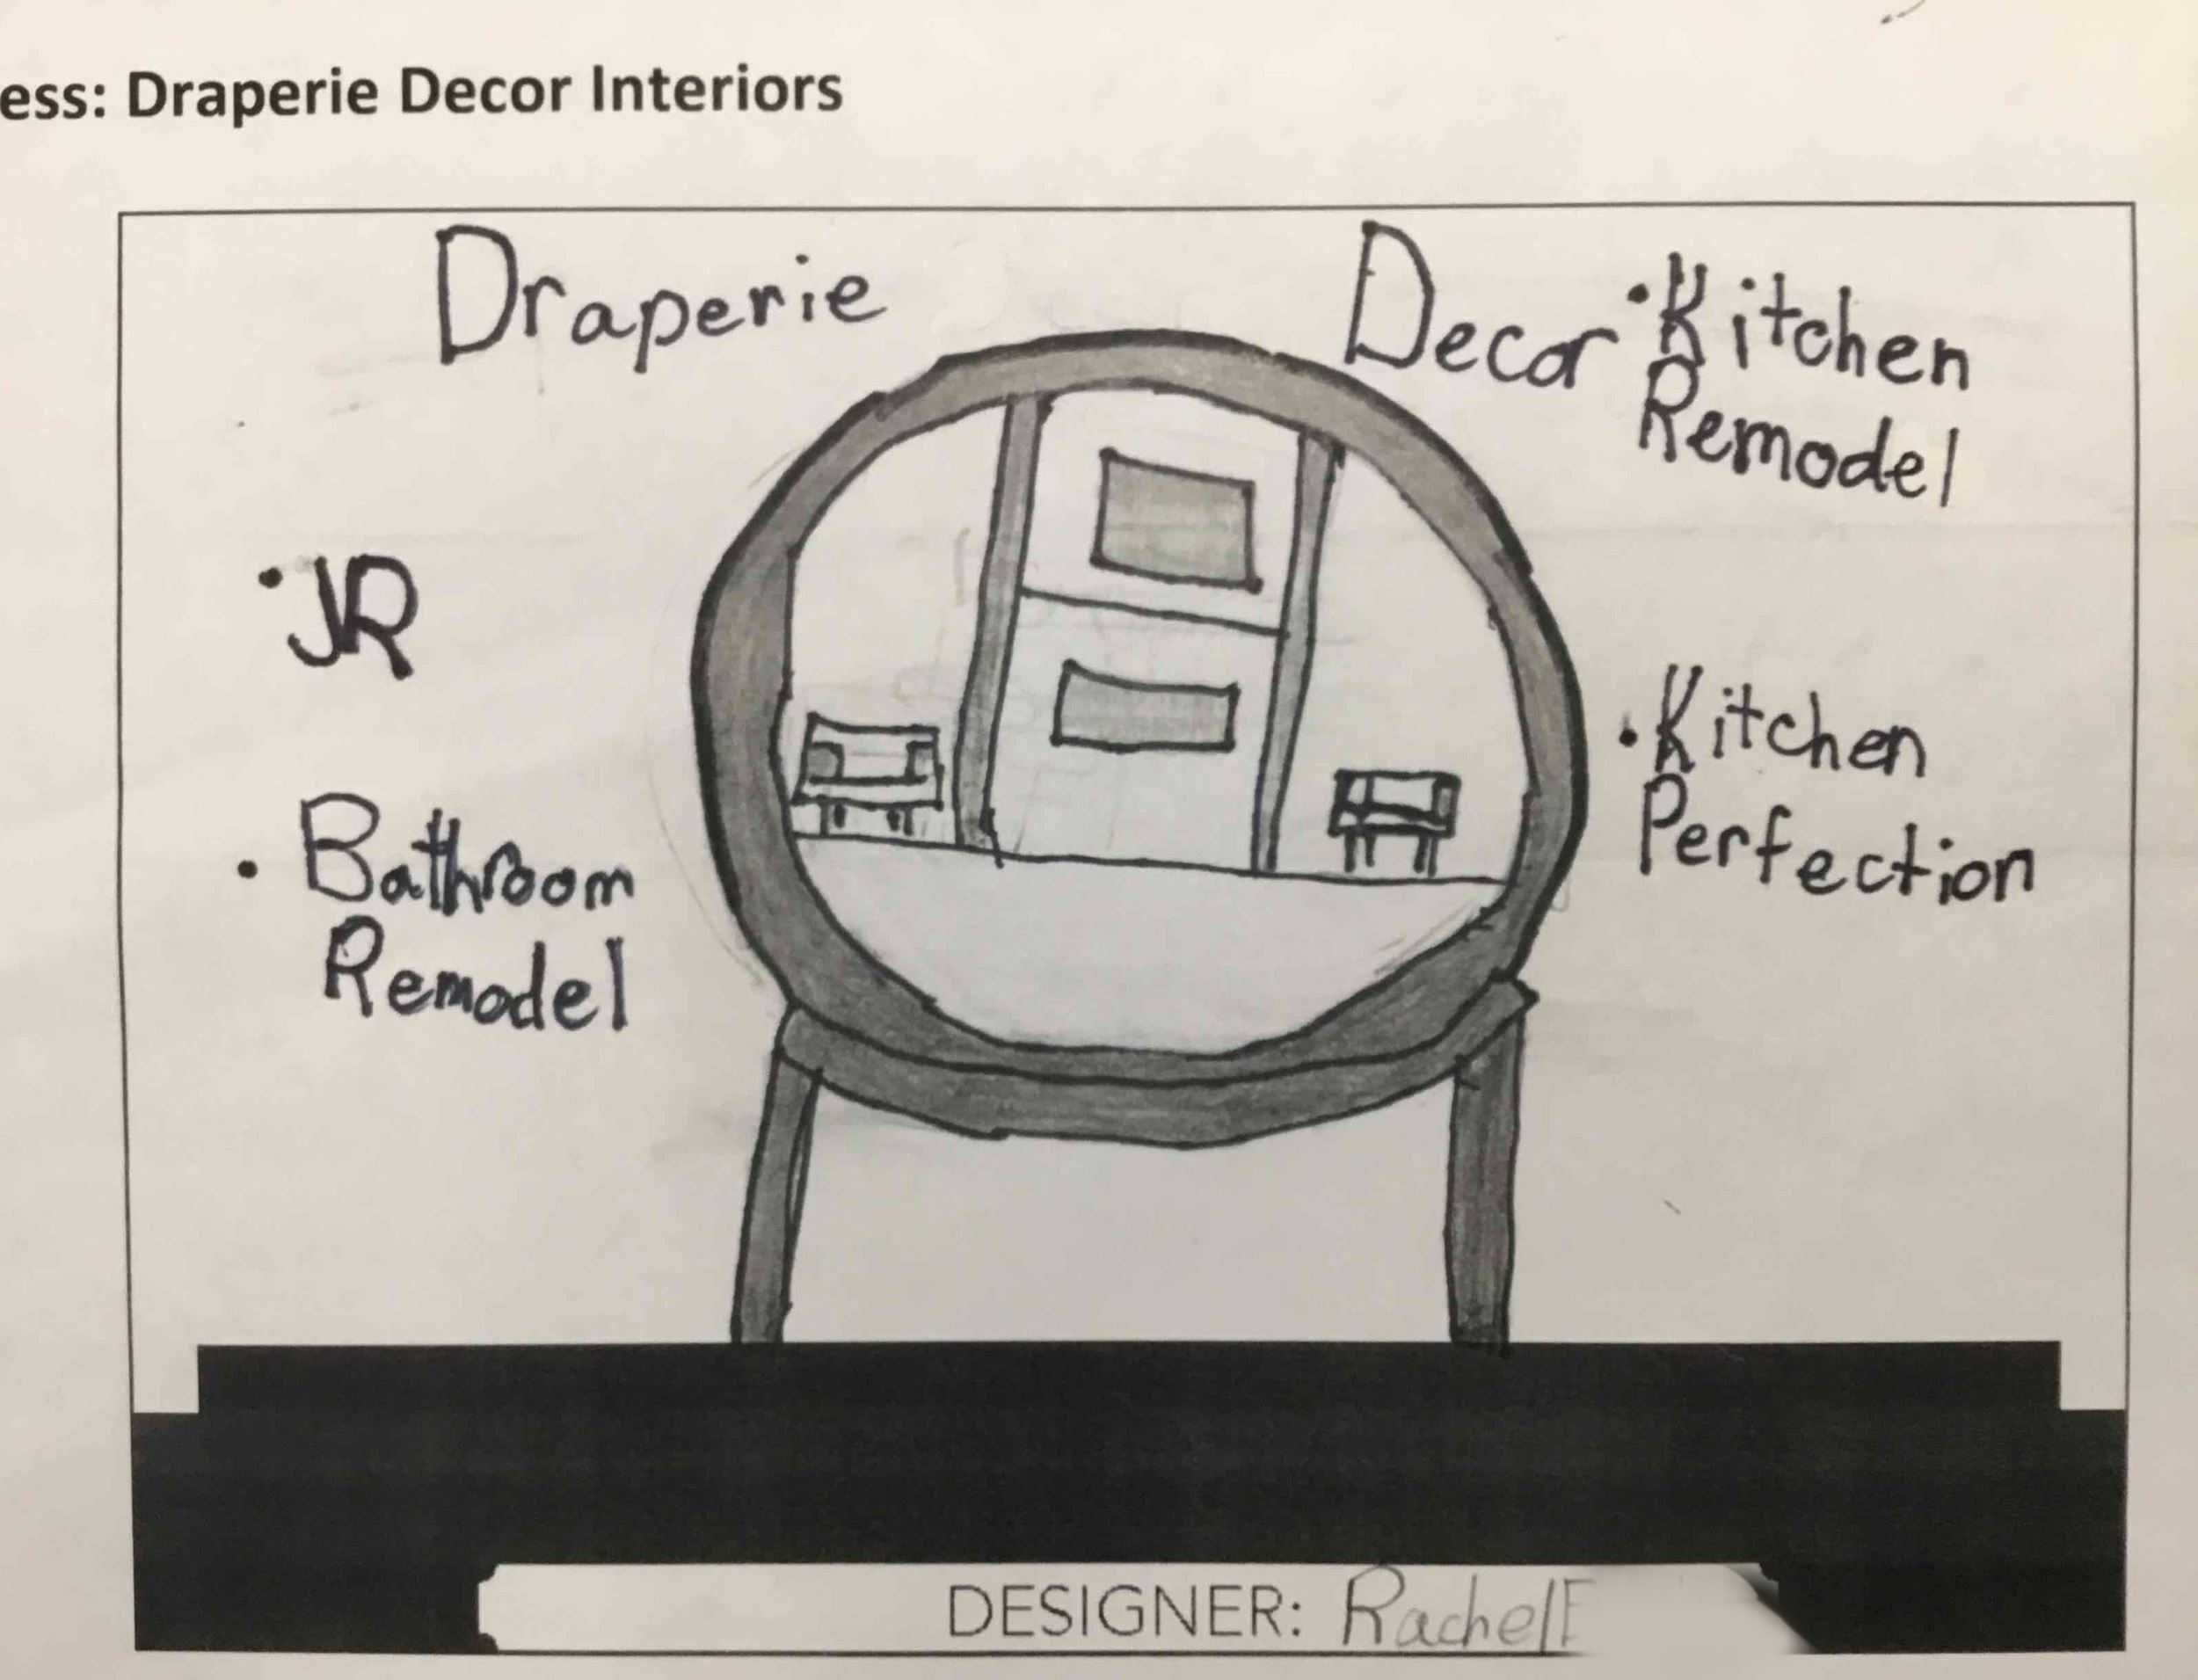 ess: Draperie Decor Interiors
Draperie Decor
• Kitchen
Remodel
• JR
• Kitchen
Perfection
• Bathroom
Remodel
DESIGNER: Rachel